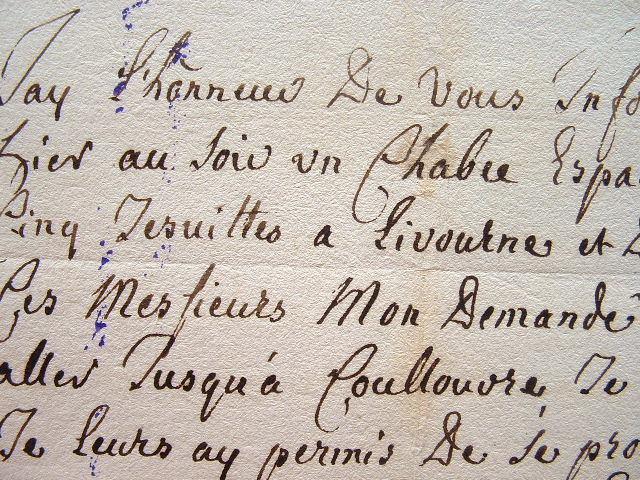 Jay L'honneur De vous Info
hier au soir un Chabec Espa
Cinq Jesuittes a Livourne et D
Ces Messieurs Mon Demandé
aller Jusqu'à Coullouvre, Je
Je leurs ay permis De se pro